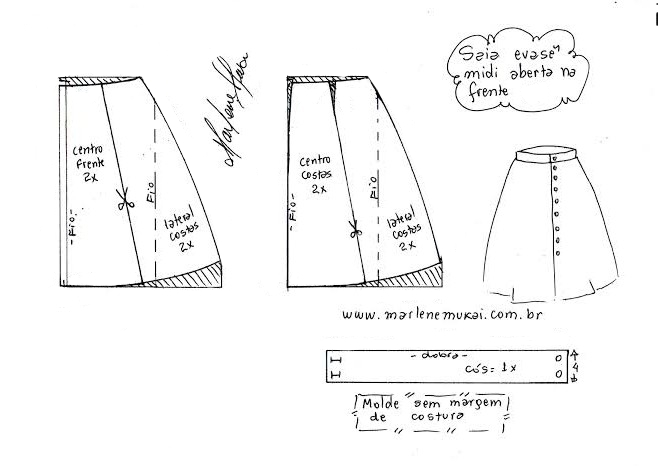 Saia evasê
midi aberta na
frente
Marlene Mukai
centro
frente
2x
-Fio-
Fio
lateral
costas
2x
centro
costas
2x
-Fio-
Fio
lateral
costas
2x
www.marlenemukai.com.br
-dobra-
cós= 1x
4
Molde sem margem
de costura